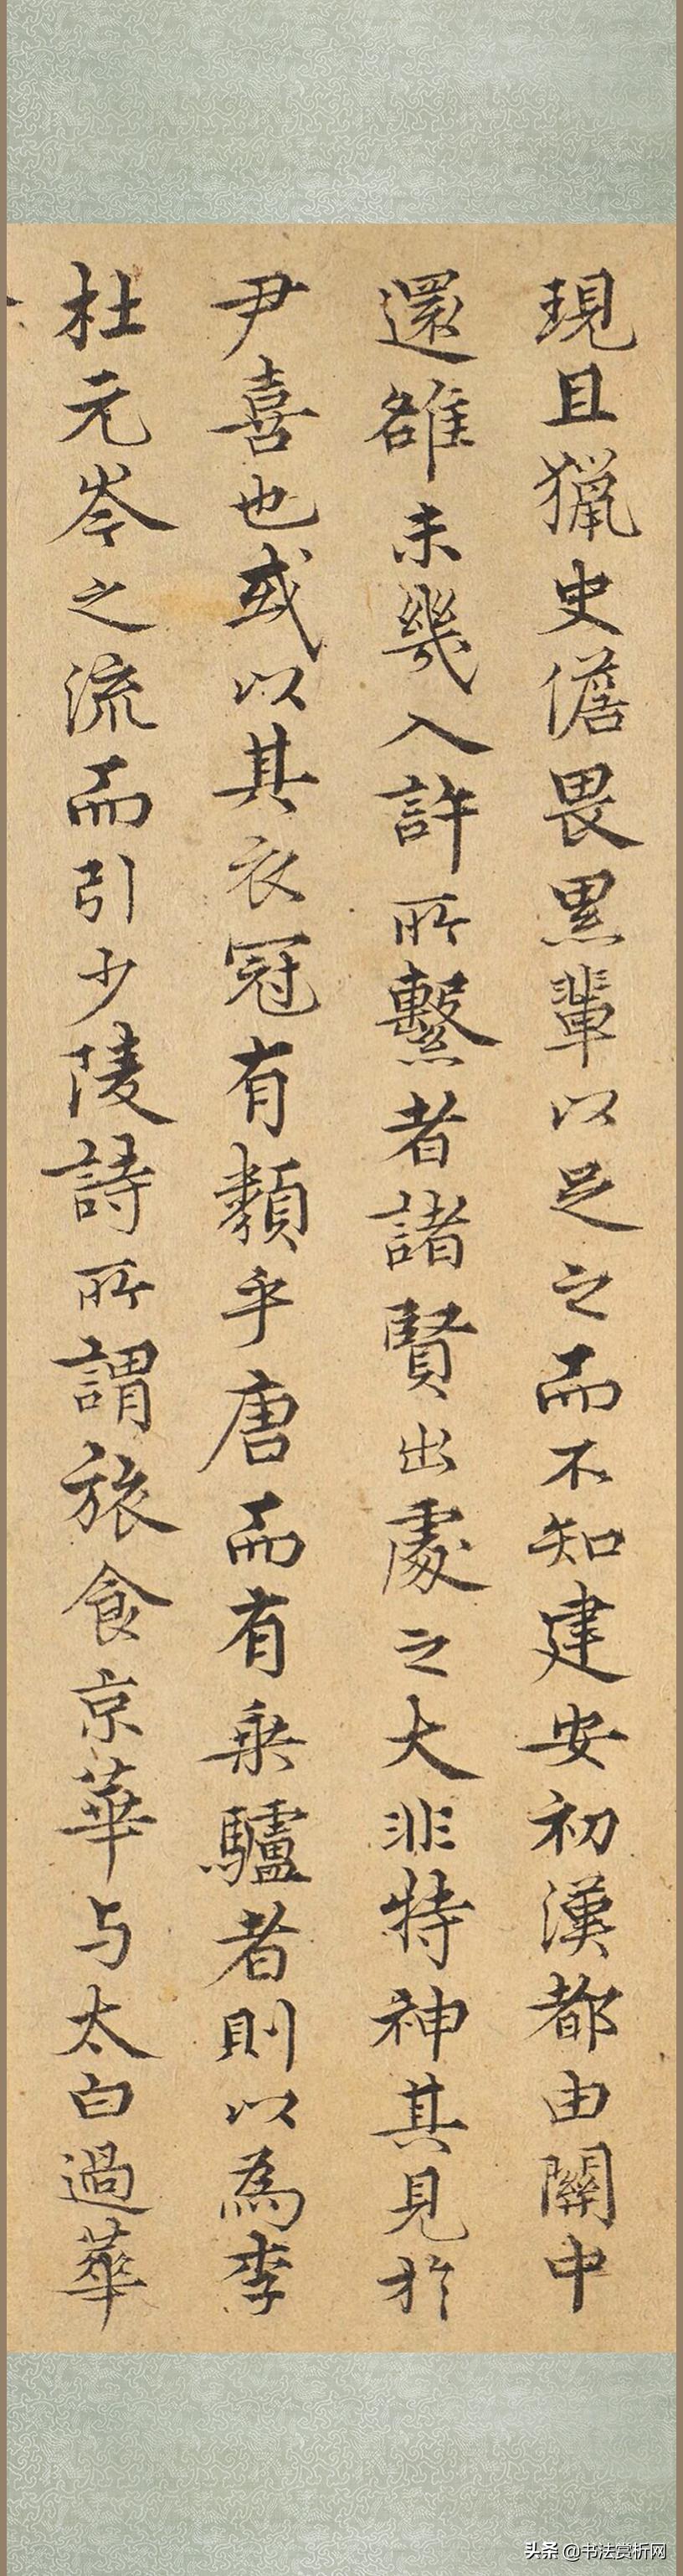 現且獵史儋畏黑輩以足之而不知建安初漢都由關中
還雒未幾入許所繫者諸賢出處之大非特神其見於
尹喜也或以其衣冠有類乎唐而有乘驢者則以為李
杜元岑之流而引少陵詩所謂旅食京華与太白過華
头条 @书法赏析网